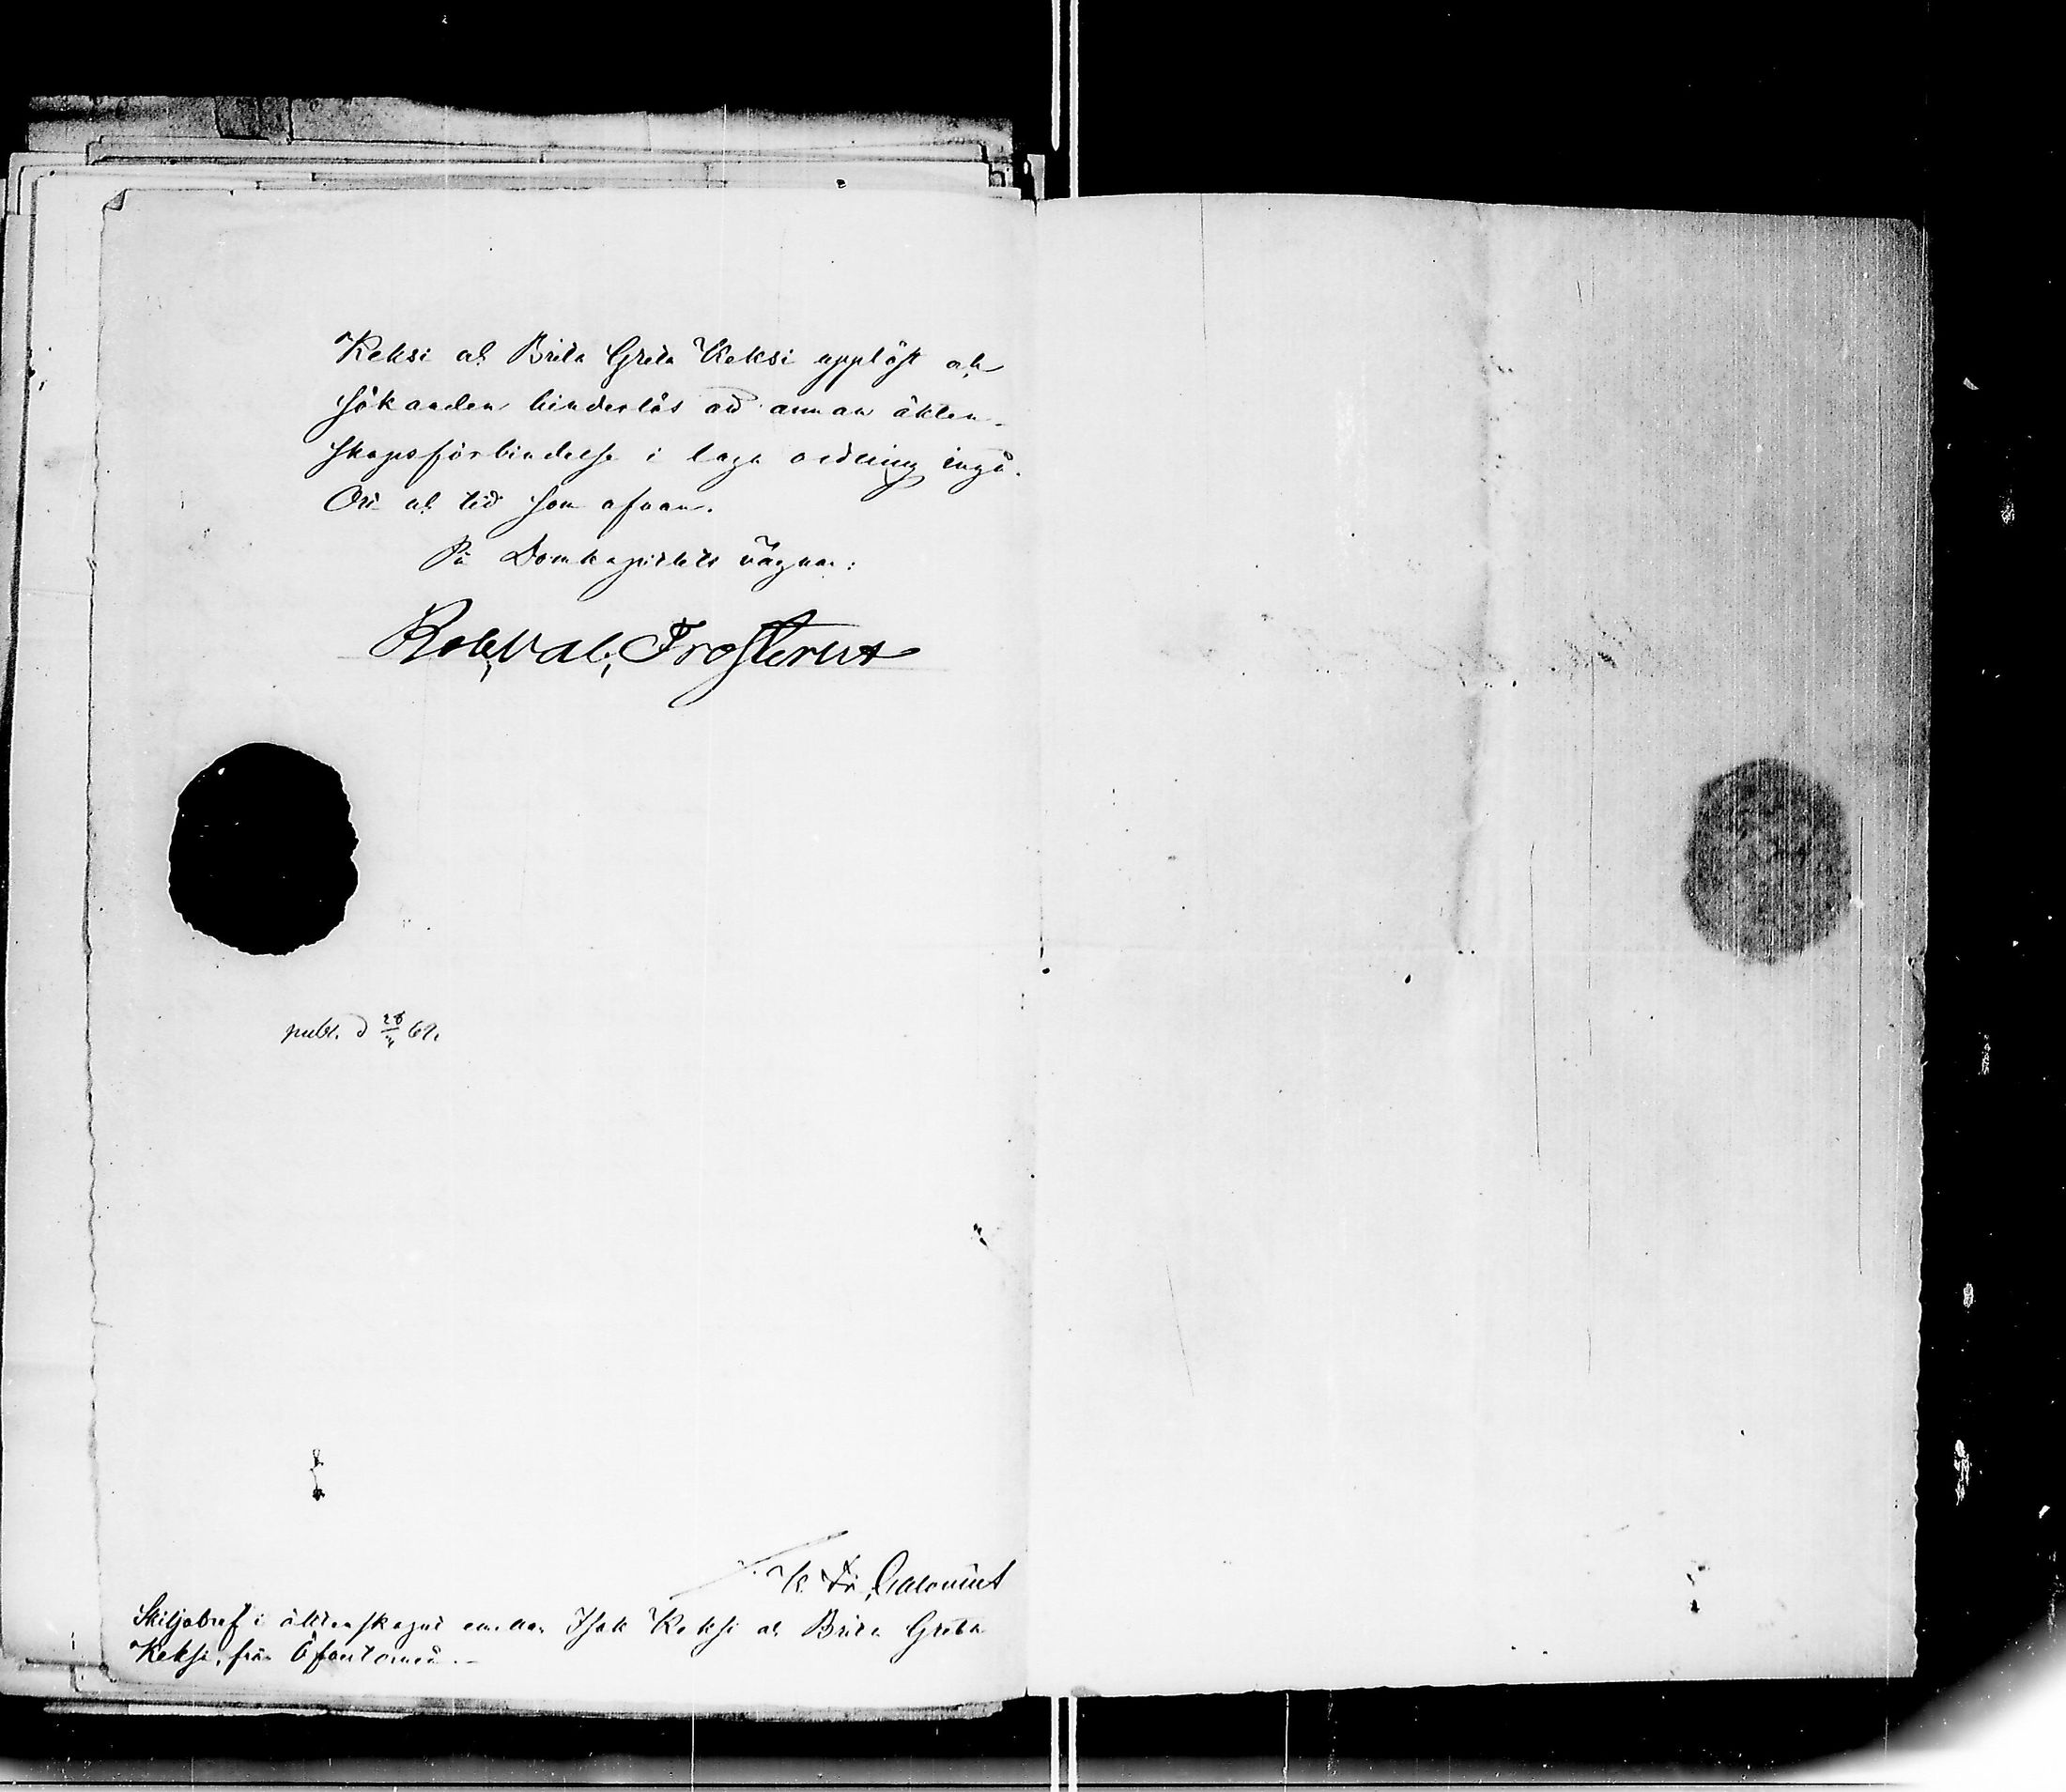 Keksi och Brita Greta Keksi upplöst och
sökanden hinderlös att annan äkten-
skapsförbindelse i laga ordning ingå.
Ort och tid som ofvan.
På Domkapitlets vägnar:
Rob. Val. Frosterus
publ. d 28 62.
Skiljobref i äktenskapet emellan Isak Keksi och Brita Greta
Keksi, från Öfvertorneå.